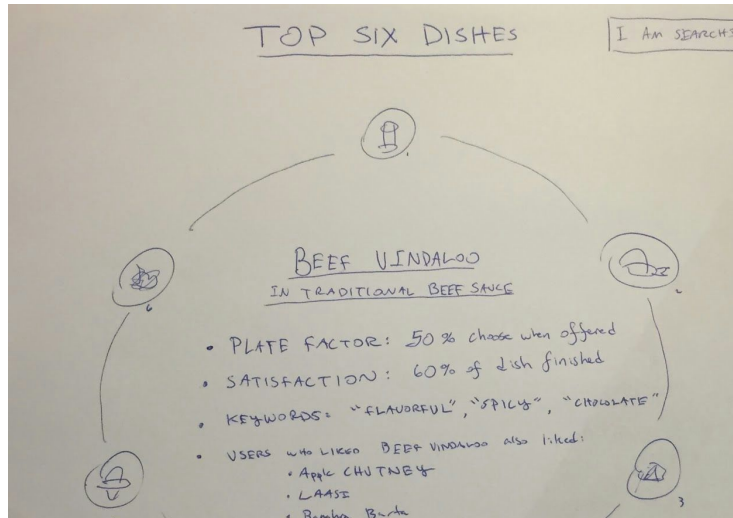 TOP SIX DISHES
I AM SEARCHI
1
2
6
BEEF VINDALOO
IN TRADITIONAL BEEF SAUCE
• PLATE FACTOR: 50% choose when offered
• SATISFACTION: 60% of dish finished
• KEYWORDS: "FLAVORFUL", "SPICY", "CHOCOLATE"
• USERS who LIKED BEEF VINDALOO also liked:
• Apple CHUTNEY
• LAASI
3